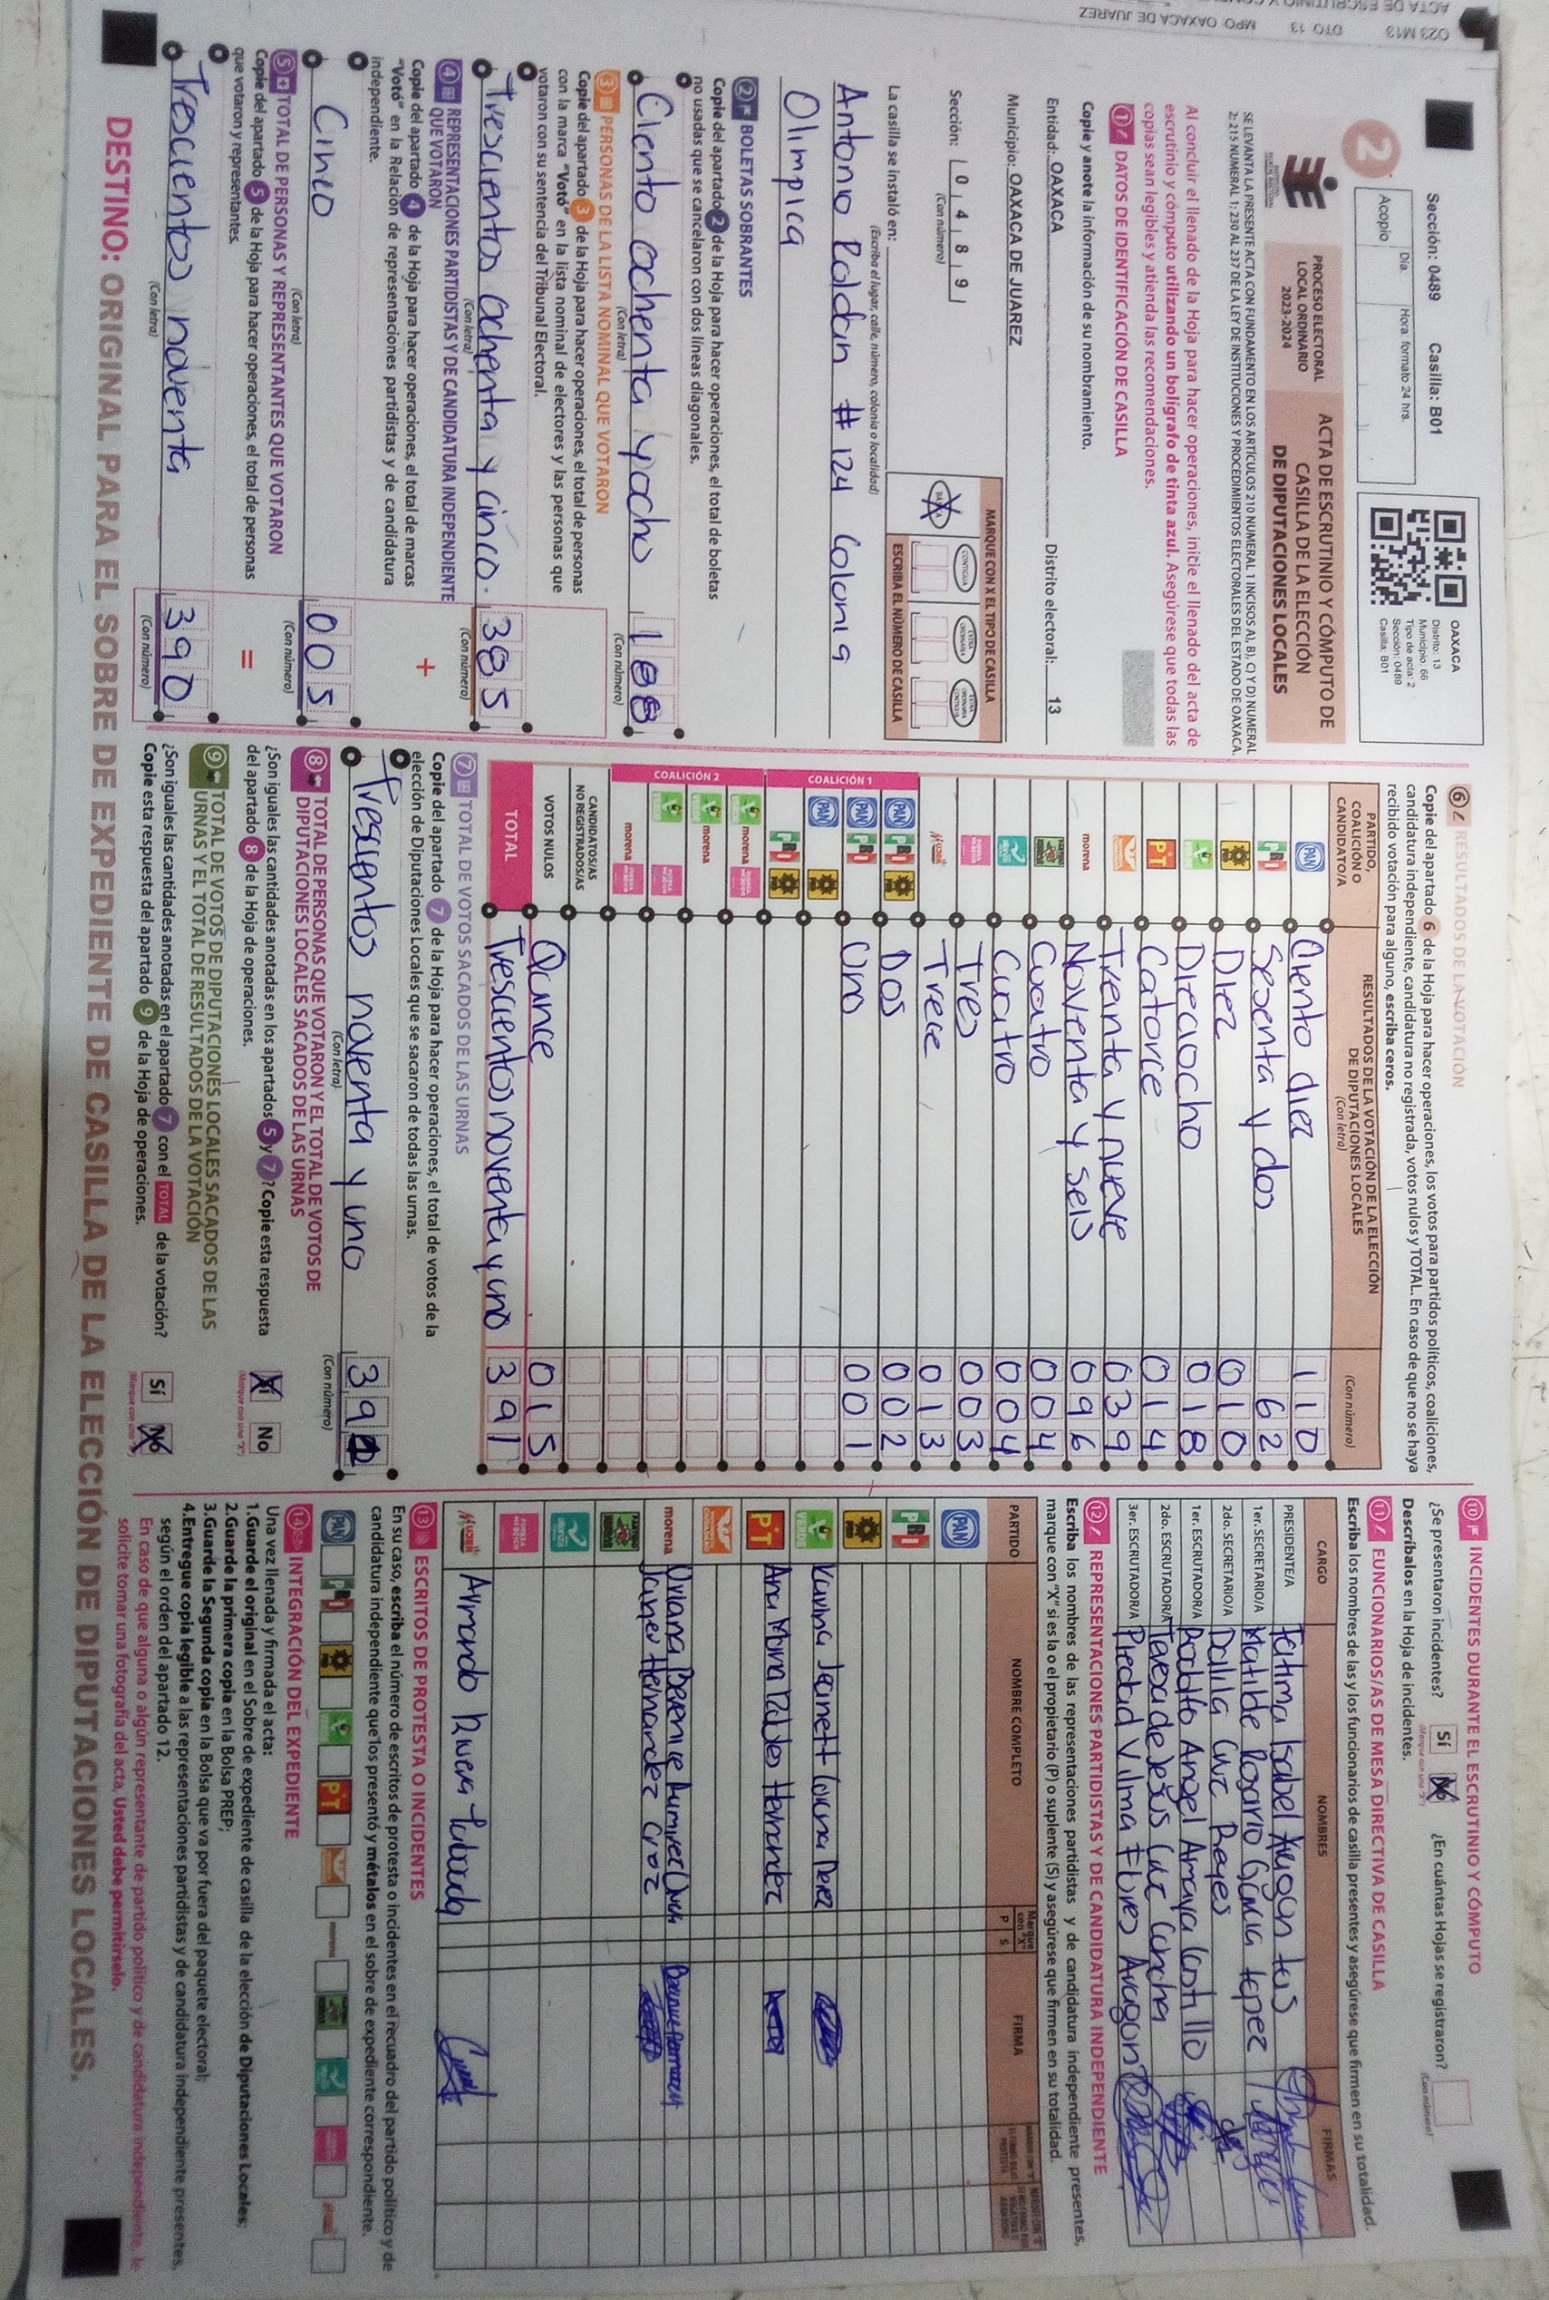 023 M13 DTO 13 MPO OAXACA DE JUAREZ
Sección: 0489 Casilla: B01
Día. Hora: formato 24 hrs.
Acopio
OAXACA
Distrito: 13
Municipio: 66
Tipo de acta: 2
Sección: 0489
Casilla: B01
2
PROCESO ELECTORAL
LOCAL ORDINARIO
2023-2024
ACTA DE ESCRUTINIO Y CÓMPUTO DE
CASILLA DE LA ELECCIÓN
DE DIPUTACIONES LOCALES
SE LEVANTA LA PRESENTE ACTA CON FUNDAMENTO EN LOS ARTÍCULOS 210 NUMERAL 1 INCISOS A), B), C) Y D) NUMERAL
2; 215 NUMERAL 1; 230 AL 237 DE LA LEY DE INSTITUCIONES Y PROCEDIMIENTOS ELECTORALES DEL ESTADO DE OAXACA.
Al concluir el llenado de la Hoja para hacer operaciones, inicie el llenado del acta de
escrutinio y cómputo utilizando un bolígrafo de tinta azul. Asegúrese que todas las
copias sean legibles y atienda las recomendaciones.
1 DATOS DE IDENTIFICACIÓN DE CASILLA
Copie y anote la información de su nombramiento.
Entidad: OAXACA Distrito electoral: 13
Municipio: OAXACA DE JUAREZ
Sección: 0 4 8 9
(Con número)
MARQUE CON X EL TIPO DE CASILLA
BÁSICA CONTIGUA EXTRAORDINARIA EXTRAORDINARIA CONTIGUA
ESCRIBA EL NÚMERO DE CASILLA
La casilla se instaló en:
(Escriba el lugar, calle, número, colonia o localidad)
Antonio Roldan # 124 Colonia
Olimpica
2 BOLETAS SOBRANTES
Copie del apartado 2 de la Hoja para hacer operaciones, el total de boletas
no usadas que se cancelaron con dos líneas diagonales.
Ciento ochenta y ocho 188
(Con letra) (Con número)
3 PERSONAS DE LA LISTA NOMINAL QUE VOTARON
Copie del apartado 3 de la Hoja para hacer operaciones, el total de personas
con la marca "Votó" en la lista nominal de electores y las personas que
votaron con su sentencia del Tribunal Electoral.
Trescientos ochenta y cinco. 385
(Con letra) (Con número)
4 REPRESENTACIONES PARTIDISTAS Y DE CANDIDATURA INDEPENDIENTE
QUE VOTARON
Copie del apartado 4 de la Hoja para hacer operaciones, el total de marcas
"Votó" en la Relación de representaciones partidistas y de candidatura
independiente.
+
Cinco 005
(Con letra) (Con número)
5 TOTAL DE PERSONAS Y REPRESENTANTES QUE VOTARON
Copie del apartado 5 de la Hoja para hacer operaciones, el total de personas
que votaron y representantes.
=
Trescientos noventa 390
(Con letra) (Con número)
6 RESULTADOS DE LA VOTACIÓN
Copie del apartado 6 de la Hoja para hacer operaciones, los votos para partidos políticos, coaliciones,
candidatura independiente, candidatura no registrada, votos nulos y TOTAL. En caso de que no se haya
recibido votación para alguno, escriba ceros.
PARTIDO,
COALICIÓN O
CANDIDATO/A
RESULTADOS DE LA VOTACIÓN DE LA ELECCIÓN
DE DIPUTACIONES LOCALES
(Con letra)
(Con número)
PAN Ciento diez 110
PRI Sesenta y dos 62
PRD Diez 010
VERDE Dieciocho 018
PT Catorce 014
Treinta y nueve 039
morena Noventa y seis 096
Cuatro 004
Cuatro 004
Tres 003
Trece 013
COALICIÓN 1
PAN PRI PRD Dos 002
PAN PRI Uno 001
PAN PRD
PRI PRD
COALICIÓN 2
VERDE morena FUERZA MÉXICO
VERDE morena
VERDE FUERZA MÉXICO
morena FUERZA MÉXICO
CANDIDATOS/AS
NO REGISTRADOS/AS
VOTOS NULOS Quince 015
TOTAL Trescientos noventa y uno 391
7 TOTAL DE VOTOS SACADOS DE LAS URNAS
Copie del apartado 7 de la Hoja para hacer operaciones, el total de votos de la
elección de Diputaciones Locales que se sacaron de todas las urnas.
Trescientos noventa y uno
(Con letra) (Con número)
8 TOTAL DE PERSONAS QUE VOTARON Y EL TOTAL DE VOTOS DE
DIPUTACIONES LOCALES SACADOS DE LAS URNAS
¿Son iguales las cantidades anotadas en los apartados 5 y 7? Copie esta respuesta
del apartado 8 de la Hoja de operaciones.
Sí No
9 TOTAL DE VOTOS DE DIPUTACIONES LOCALES SACADOS DE LAS
URNAS Y EL TOTAL DE RESULTADOS DE LA VOTACIÓN
¿Son iguales las cantidades anotadas en el apartado 7 con el TOTAL de la votación?
Copie esta respuesta del apartado 9 de la Hoja de operaciones.
Sí No
10 INCIDENTES DURANTE EL ESCRUTINIO Y CÓMPUTO
¿Se presentaron incidentes? Sí No ¿En cuántas Hojas se registraron?
(Marque con una "X") (Con número)
Descríbalos en la Hoja de incidentes.
11 FUNCIONARIOS/AS DE MESA DIRECTIVA DE CASILLA
Escriba los nombres de las y los funcionarios de casilla presentes y asegúrese que firmen en su totalidad.
CARGO NOMBRES FIRMAS
PRESIDENTE/A Fatima Isabel
1er. SECRETARIO/A Matilde Rosario García Lopez
2do. SECRETARIO/A Dalila Cruz Reyes
1er. ESCRUTADOR/A Rodolfo Angel Amaya Castillo
2do. ESCRUTADOR/A Teresa de Jesus Cruz Concha
3er. ESCRUTADOR/A Piedad Vilma Flores Aragon
12 REPRESENTACIONES PARTIDISTAS Y DE CANDIDATURA INDEPENDIENTE
Escriba los nombres de las representaciones partidistas y de candidatura independiente presentes,
marque con "X" si es la o el propietario (P) o suplente (S) y asegúrese que firmen en su totalidad.
PARTIDO NOMBRE COMPLETO Marque con "X" P S FIRMA
PAN
PRI
PRD
VERDE Karina Jeanett Corona Perez
PT Ana Maria Robles Hernandez
morena Oriana Berenice Ramirez
Janet Hernandez Cruz
Armando Rivera
13 ESCRITOS DE PROTESTA O INCIDENTES
En su caso, escriba el número de escritos de protesta o incidentes en el recuadro del partido político y de
candidatura independiente que los presentó y métalos en el sobre de expediente correspondiente.
14 INTEGRACIÓN DEL EXPEDIENTE
Una vez llenada y firmada el acta:
1.Guarde el original en el Sobre de expediente de casilla de la elección de Diputaciones Locales;
2.Guarde la primera copia en la Bolsa PREP;
3.Guarde la Segunda copia en la Bolsa que va por fuera del paquete electoral;
4.Entregue copia legible a las representaciones partidistas y de candidatura independiente presentes,
según el orden del apartado 12.
En caso de que alguna o algún representante de partido político y de candidatura independiente, le
solicite tomar una fotografía del acta, Usted debe permitírselo.
DESTINO: ORIGINAL PARA EL SOBRE DE EXPEDIENTE DE CASILLA DE LA ELECCIÓN DE DIPUTACIONES LOCALES.